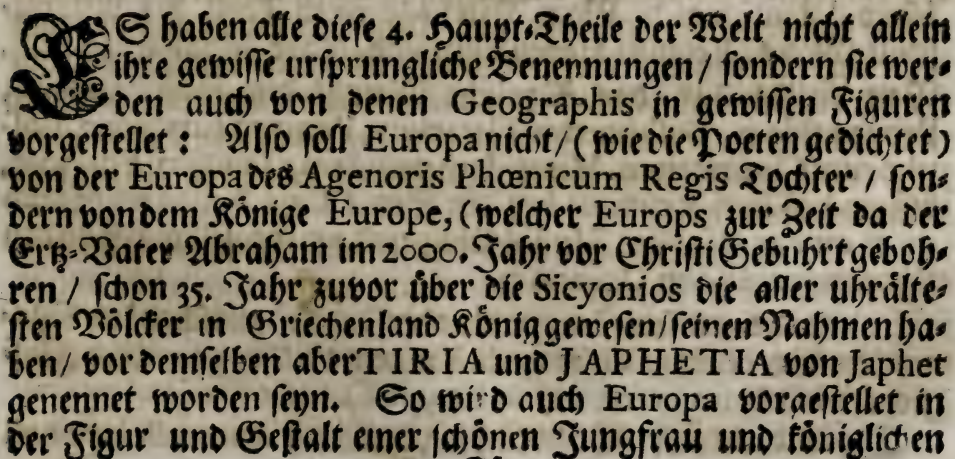 ES haben alle diese 4. Haupt-Theile der Welt nicht allein
ihre gewisse ursprungliche Benennungen / sondern sie wer-
den auch von denen Geographis in gewissen Figuren
vorgestellet : Also soll Europa nicht / (wie die Poeten gedichtet)
von der Europa des Agenoris Phœnicum Regis Tochter / son-
dern von dem Könige Europe, (welcher Europs zur Zeit da der
Ertz-Vater Abraham im 2000. Jahr vor Christi Gebuhrt geboh-
ren / schon 35. Jahr zuvor über die Sicyonios die aller uhrälte-
sten Völcker in Griechenland König gewesen / seinen Nahmen ha-
ben / vor demselben aber TIRIA und JAPHETIA von Japhet
genennet worden seyn. So wird auch Europa vorgestellet in
der Figur und Gestalt einer schönen Jungfrau und königlichen